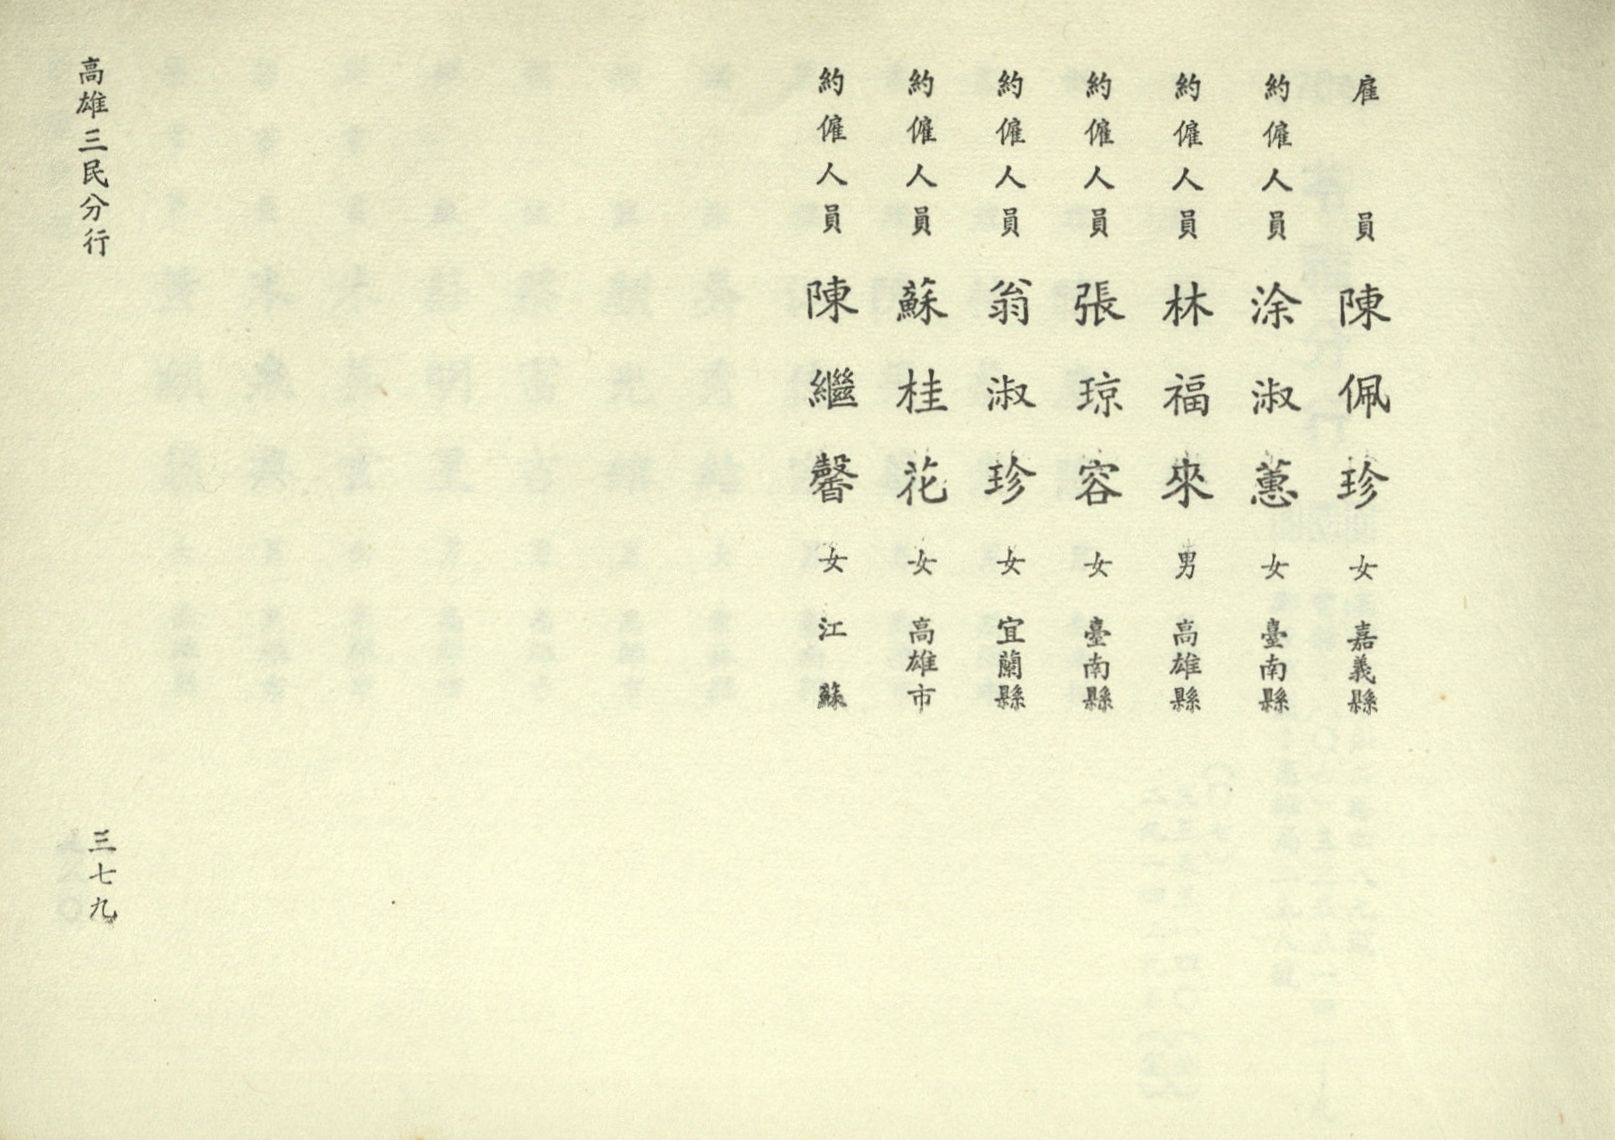 雇員 陳佩珍 女 嘉義縣
約僱人員 涂淑蕙 女 臺南縣
約僱人員 林福來 男 高雄縣
約僱人員 張琼容 女 臺南縣
約僱人員 翁淑珍 女 宜蘭縣
約僱人員 蘇桂花 女 高雄市
約僱人員 陳繼馨 女 江蘇
高雄三民分行
三七九